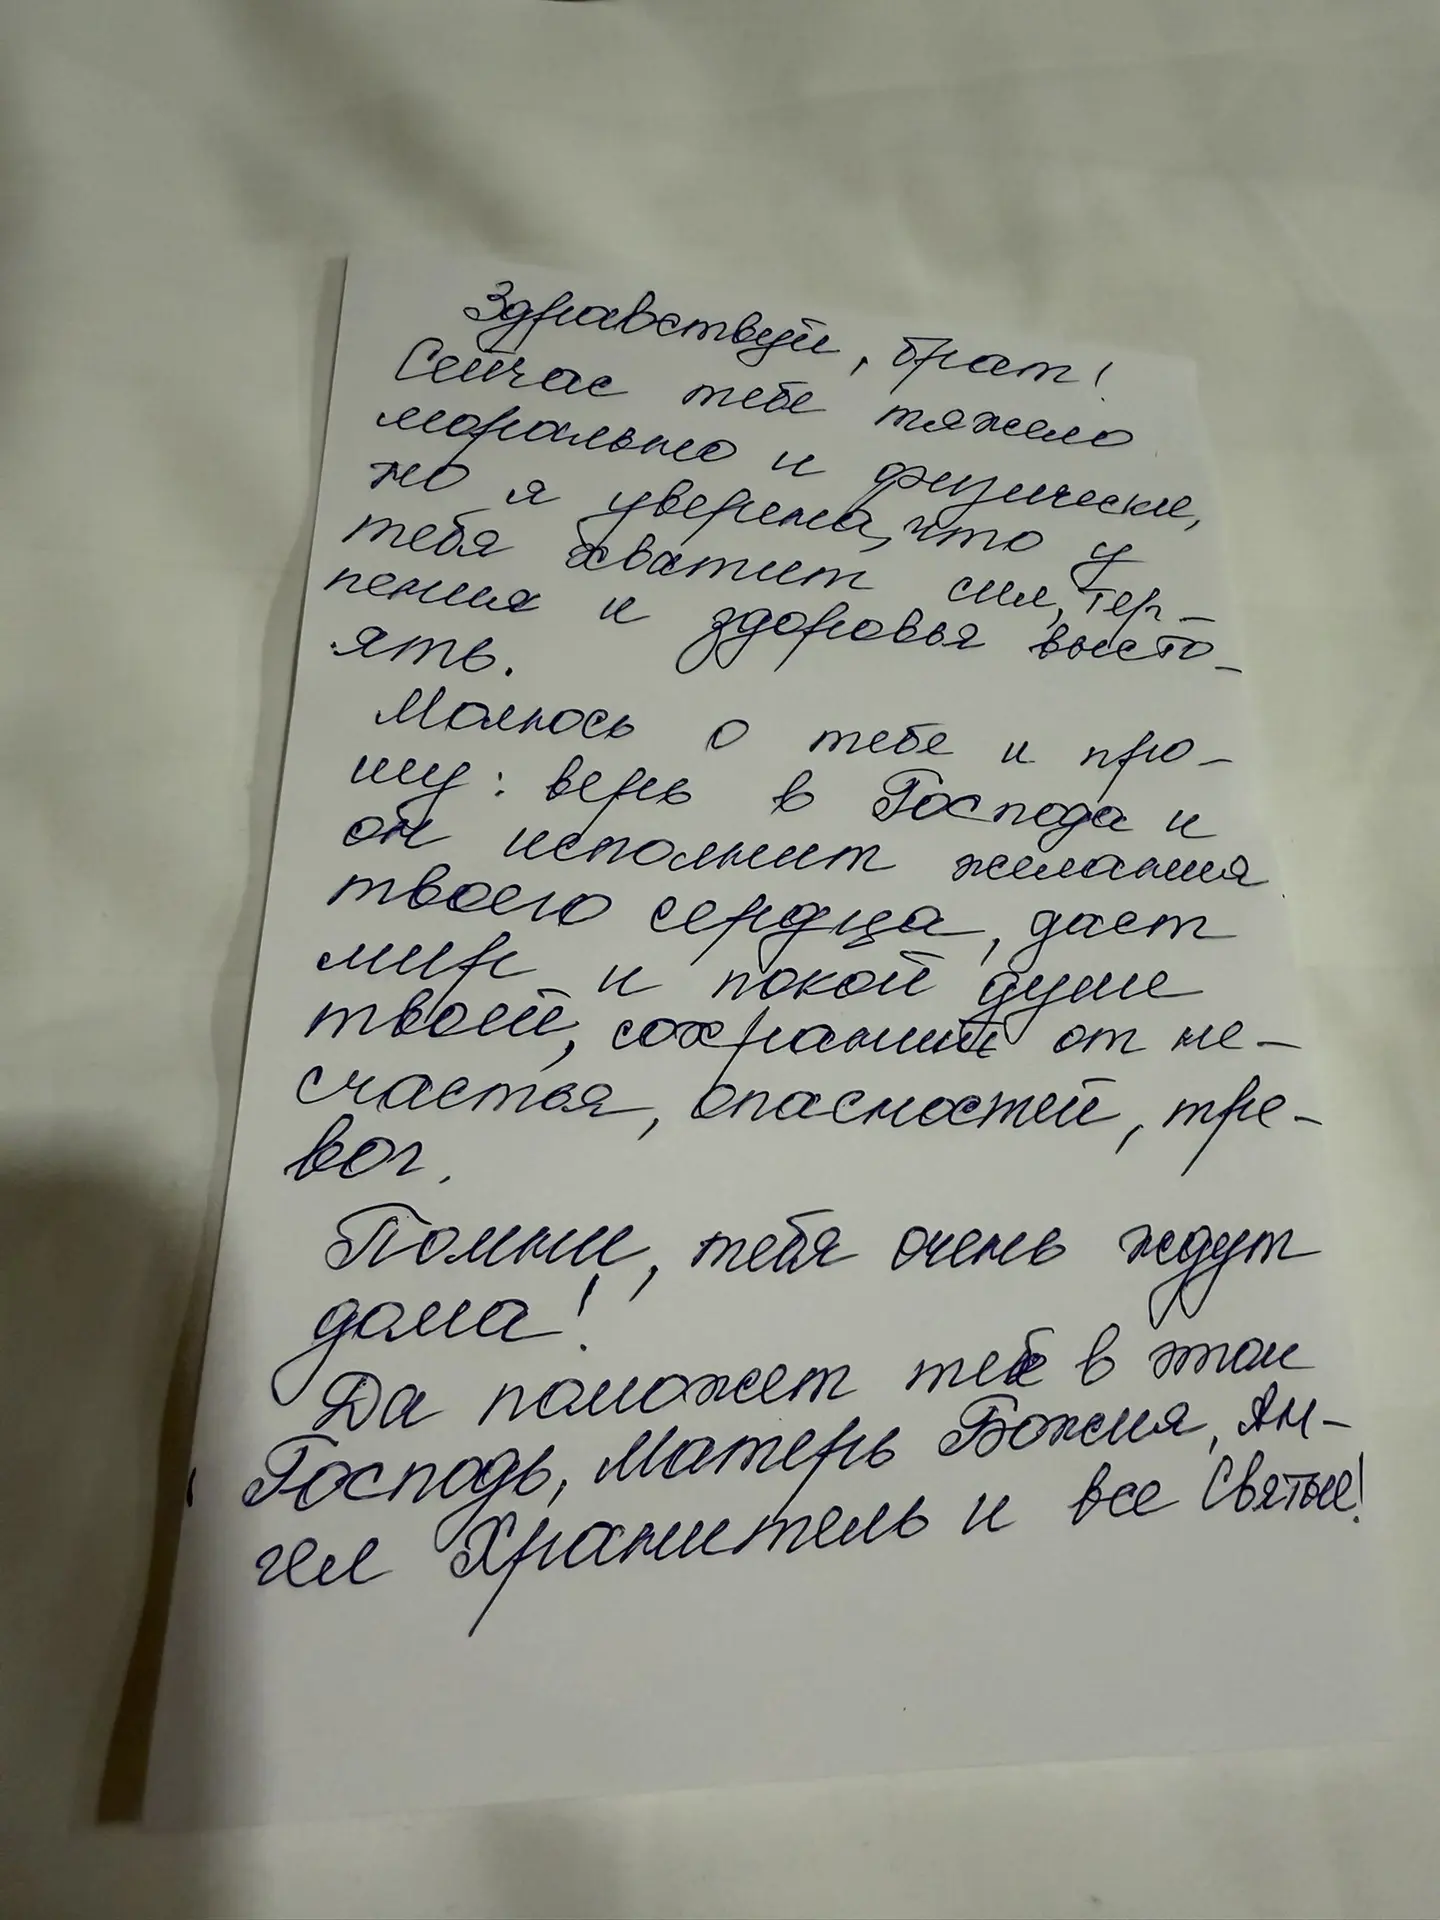 Здравствуй, брат!
Сейчас тебе тяжело
морально и физически,
но я уверена, что у
тебя хватит сил, тер-
пения и здоровья высто-
ять.
Молюсь о тебе и про-
шу: верь в Господа и
он исполнит желания
твоего сердца, даст
мир и покой душе
твоей, сохранит от не-
счастья, опасностей, тре-
вог.
Помни, тебя очень ждут
дома!
Да поможет тебе в этом
Господь, Матерь Божия, Ан-
гел Хранитель и все Святые!